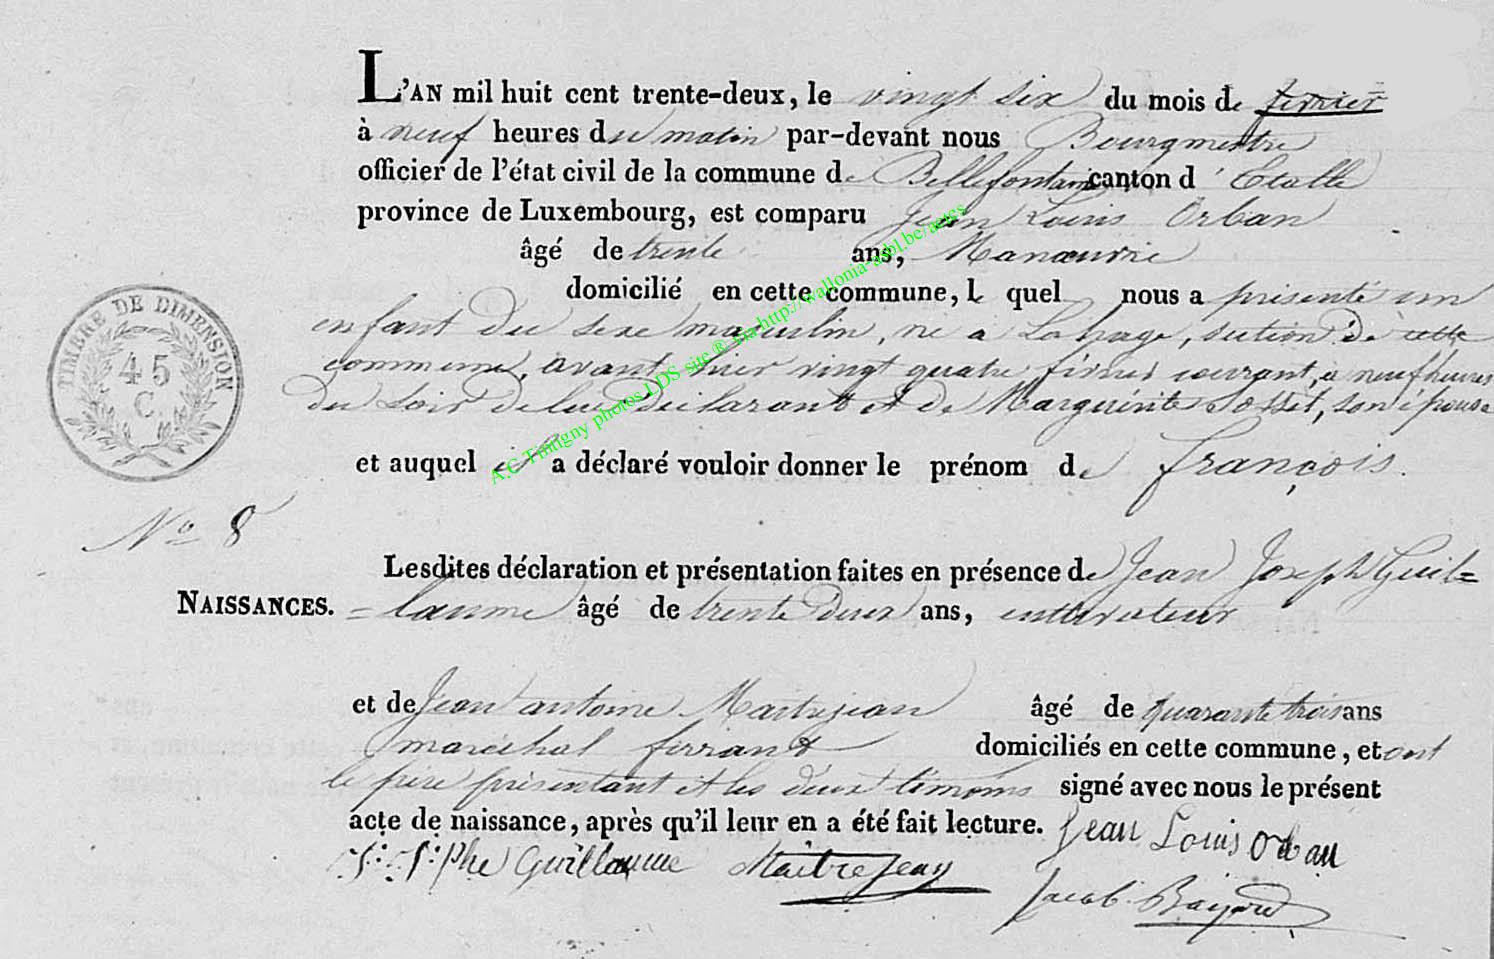 L'AN mil huit cent trente-deux, le vingt six du mois de fevrier
à neuf heures du matin par-devant nous Bourgmestre
officier de l'état civil de la commune de Bellefontaine canton d'Etalle
province de Luxembourg, est comparu Jean Louis Orban
âgé de trente ans, Manœuvre
domicilié en cette commune, lequel nous a présenté un
enfant du sexe masculin, né à Lahage, section de cette
commune, avant hier vingt quatre février courant, à neuf heures
du soir de lui déclarant et de Marguérite Rosset, son épouse
et auquel il a déclaré vouloir donner le prénom de François.
TIMBRE DE DIMENSION
45
C.
N° 8
NAISSANCES.
Lesdites déclaration et présentation faites en présence de Jean Joseph Guil=
=laume âgé de trente deux ans, cultivateur
et de Jean antoine Maitrejean âgé de quarante trois ans
maréchal ferrant domiciliés en cette commune, et ont
le père présentant et les deux témoins signé avec nous le présent
acte de naissance, après qu'il leur en a été fait lecture. Jean Louis Orban
J: J:phe Guillaume Maître jean
Jacob Bayard
A.C Tintigny photos LDS site ® via http://wallonia-asbl.be/actes